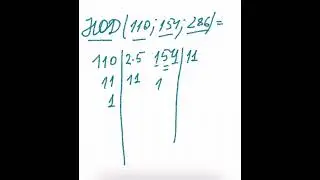 НОД (110; 154; 286) =
110 | 2·5 154 | 11
11 | 11 1
1